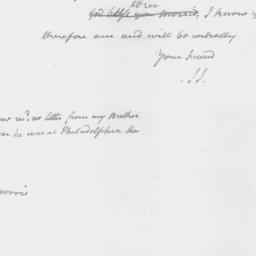 God bless you Morris, I know
therefore am and will be cordially
Your friend
J.J.
rec.d no letter from my Brother
he was at Philadelphia